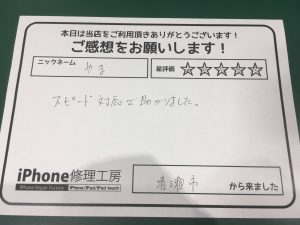 本日は当店をご利用頂きありがとうございます！
ご感想をお願いします！
ニックネーム
やま
星評価
☆☆☆☆☆
スピード対応で助かりました。
iPhone修理工房
iPhone Repair Factory
iPhone/iPad/iPod touch
清瀬市
から来ました